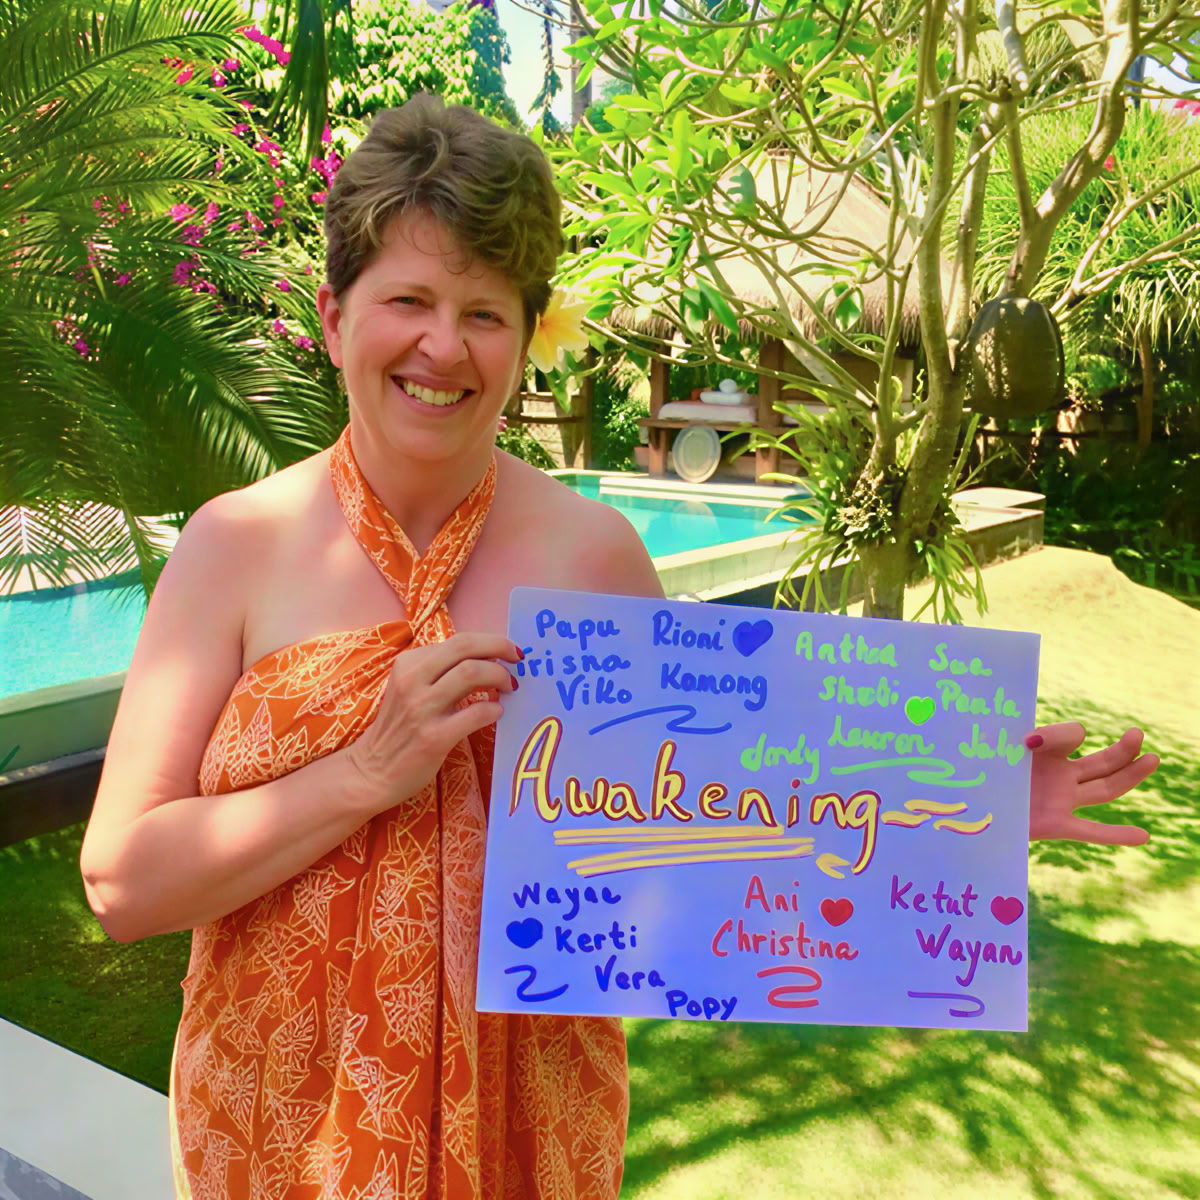 Papu Rioni
Trisna
Viko Kamong
Anthea Sue
Shebi Paula
Lauren
Awakening
Wayan
Kerti
Vera
Popy
Ani
Christina
Ketut
Wayan